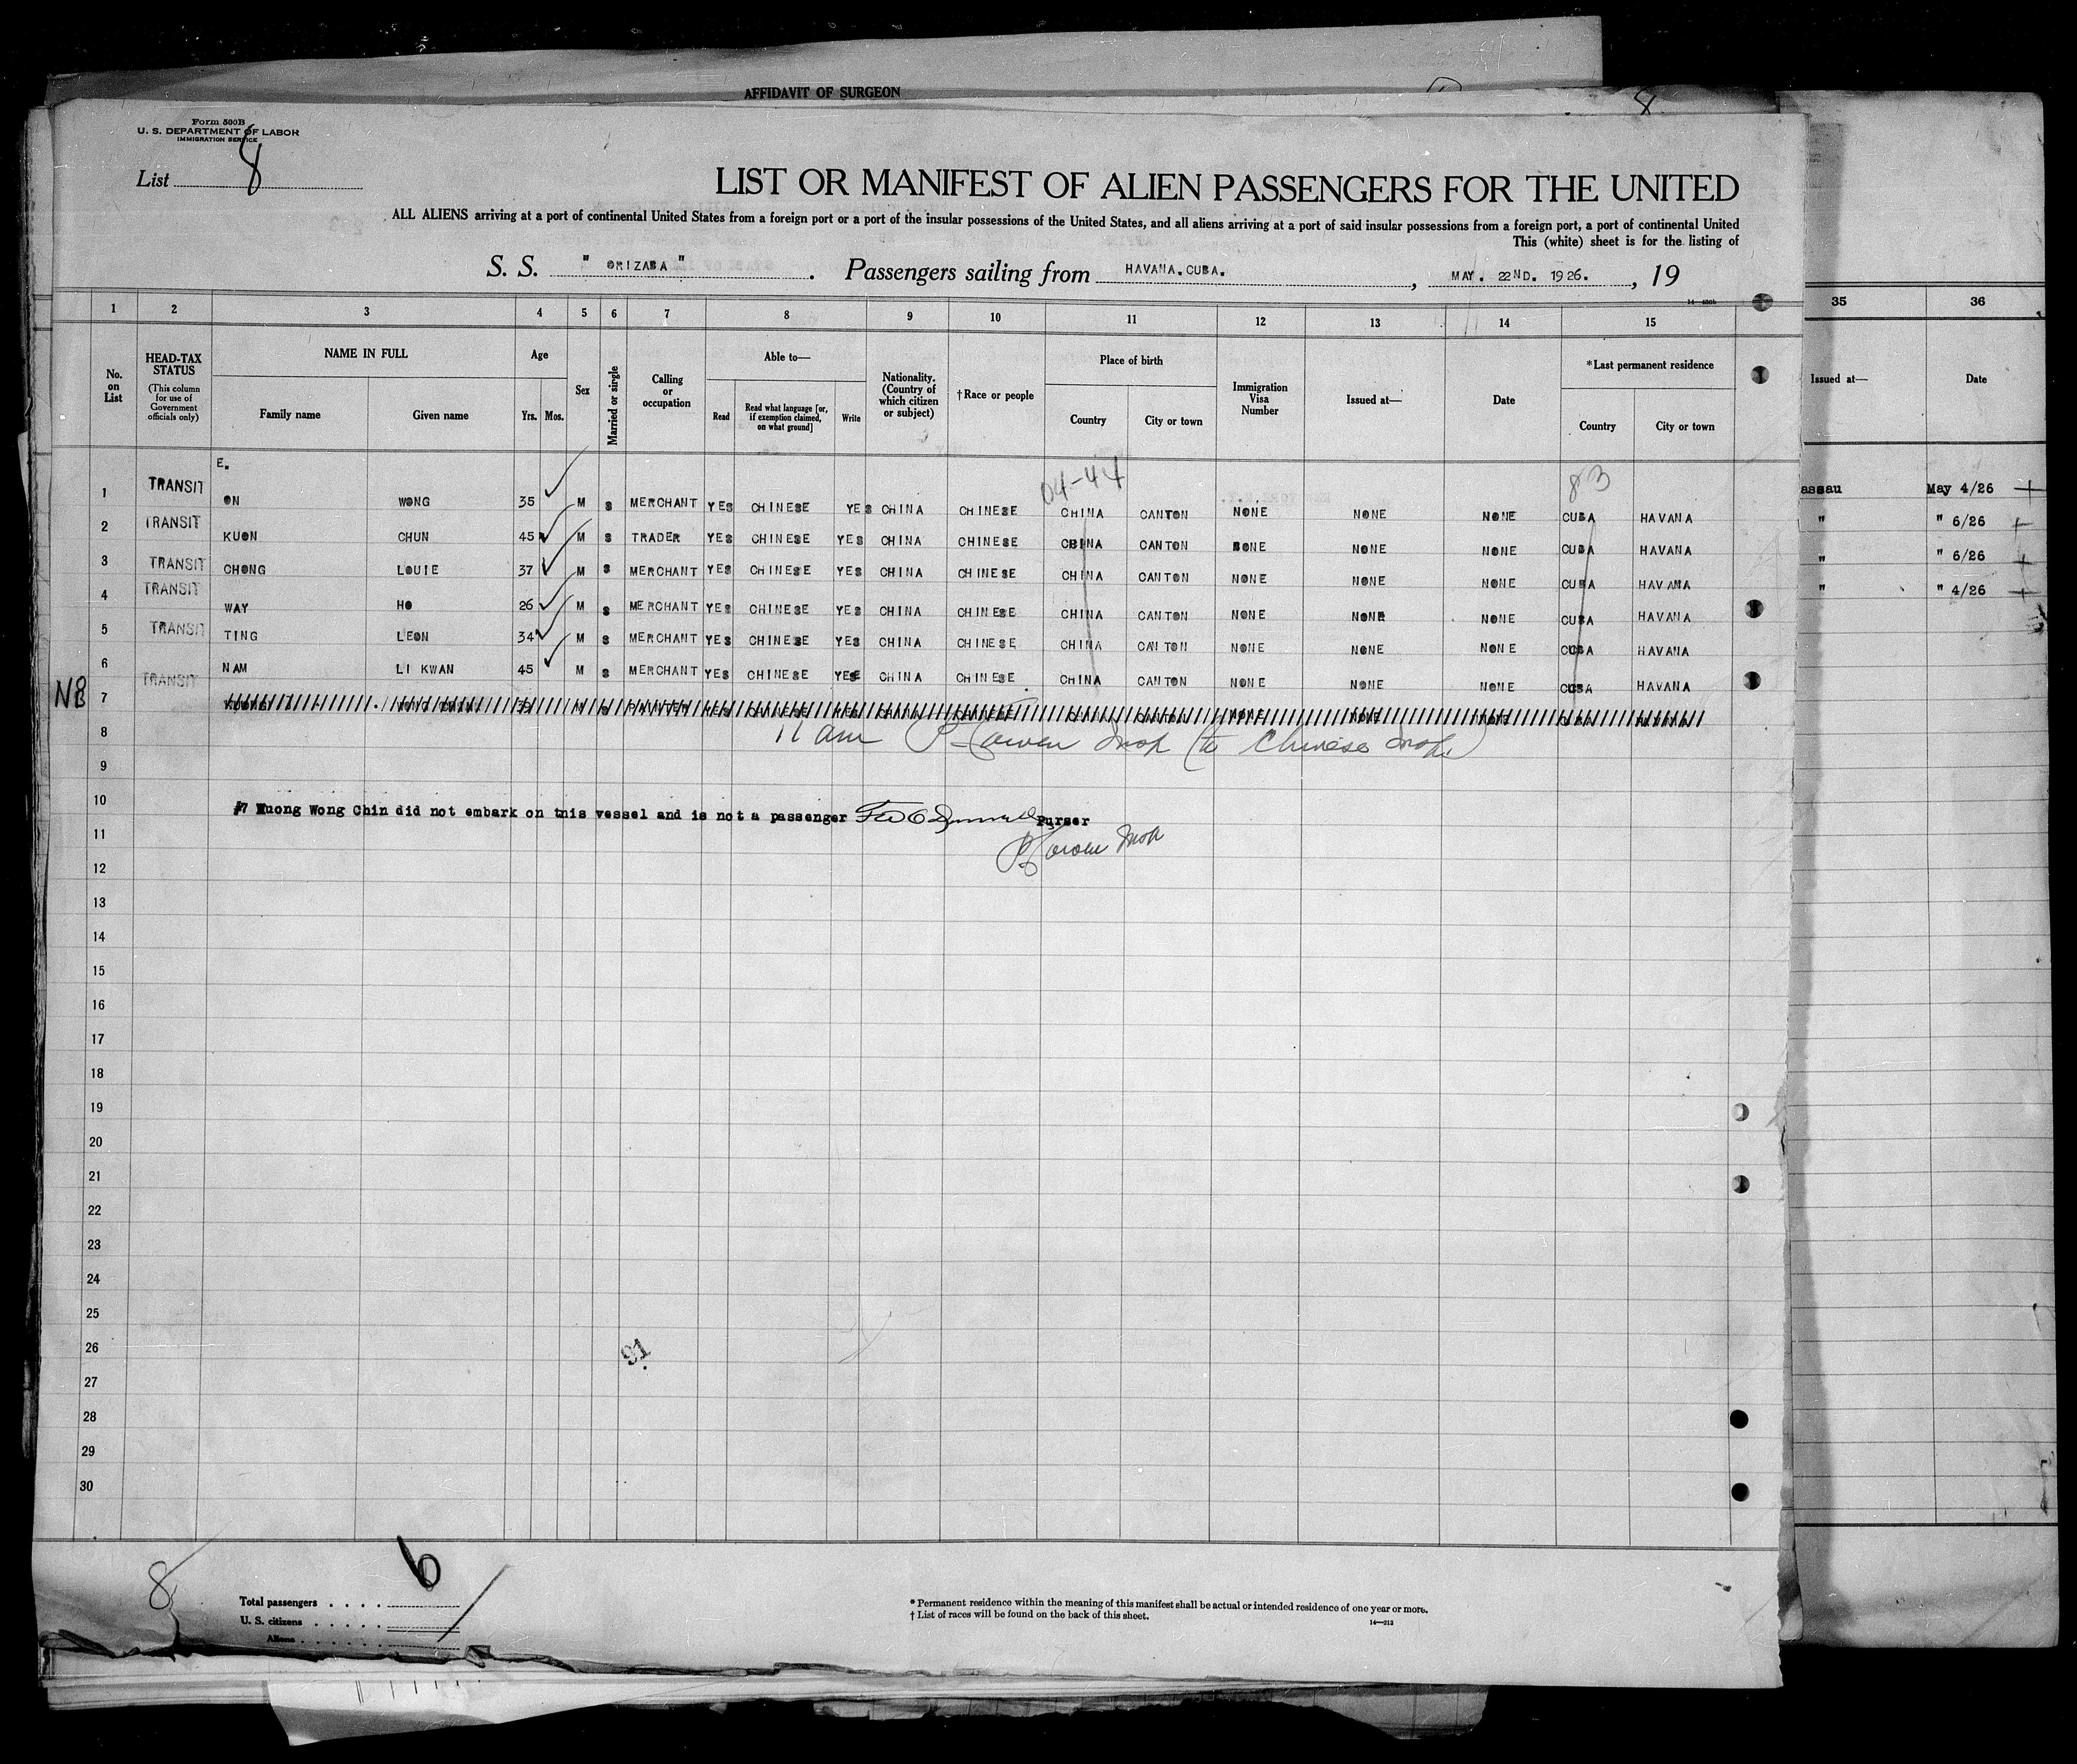 AFFIDAVIT OF SURGEON
8
Form 500B
U. S. DEPARTMENT OF LABOR
IMMIGRATION SERVICE
List 8
LIST OR MANIFEST OF ALIEN PASSENGERS FOR THE UNITED
ALL ALIENS arriving at a port of continental United States from a foreign port or a port of the insular possessions of the United States, and all aliens arriving at a port of said insular possessions from a foreign port, a port of continental United
This (white) sheet is for the listing of
S. S. " ORIZABA " . Passengers sailing from HAVANA.CUBA. , MAY. 22ND. 1926. , 19
1 2 3 4 5 6 7 8 9 10 11 12 13 14 15 35 36
No. on List
HEAD-TAX STATUS
(This column for use of Government officials only)
NAME IN FULL
Family name Given name
Age
Yrs. Mos.
Sex
Married or single
Calling or occupation
Able to—
Read
Read what language [or, if exemption claimed, on what ground]
Write
Nationality. (Country of which citizen or subject)
†Race or people
Place of birth
Country City or town
Immigration Visa Number
Issued at—
Date
*Last permanent residence
Country City or town
Issued at— Date
E.
04-44 83
1 TRANSIT ON WONG 35 M S MERCHANT YES CHINESE YES CHINA CHINESE CHINA CANTON NONE NONE NONE CUBA HAVANA assau May 4/26
2 TRANSIT KUON CHUN 45 M S TRADER YES CHINESE YES CHINA CHINESE CHINA CANTON NONE NONE NONE CUBA HAVANA " " 6/26
3 TRANSIT CHONG LOUIE 37 M S MERCHANT YES CHINESE YES CHINA CHINESE CHINA CANTON NONE NONE NONE CUBA HAVANA " " 6/26
4 TRANSIT WAY HO 26 M S MERCHANT YES CHINESE YES CHINA CHINESE CHINA CANTON NONE NONE NONE CUBA HAVANA " " 4/26
5 TRANSIT TING LEON 34 M S MERCHANT YES CHINESE YES CHINA CHINESE CHINA CANTON NONE NONE NONE CUBA HAVANA
6 TRANSIT NAM LI KWAN 45 M S MERCHANT YES CHINESE YES CHINA CHINESE CHINA CANTON NONE NONE NONE CUBA HAVANA
7
8 11 am Insp (to Chinese Insp)
9
10 #7 Kuong Wong Chin did not embark on this vessel and is not a passenger Purser
11 Insp
12
13
14
15
16
17
18
19
20
21
22
23
24
25
26
91
27
28
29
30
8
6
Total passengers
U. S. citizens
Aliens
* Permanent residence within the meaning of this manifest shall be actual or intended residence of one year or more.
† List of races will be found on the back of this sheet.
14—213